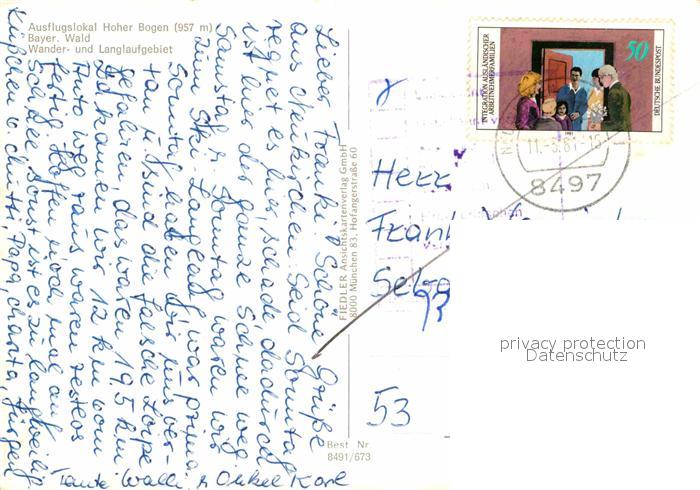 Ausflugslokal Hoher Bogen (957 m)
Bayer. Wald
Wander- und Langlaufgebiet
Lieber Frank! Schöne Grüße
aus Neukirchen. Seid Sonntag
regnet es hier, schade, dadurch
ist nun der ganze Schnee weg
Samstag u. Sonntag waren wir
zum Ski-Langlauf, war prima.
Sonntag haben wir uns ver-
tan u. sind die falsche Loipe
gefahren, das waren 19,5 km
und kamen wir 12 km vom
Auto weg raus, waren restlos
fertig. Hoffen noch mal auf
Schnee sonst ist es zu langweilig
Küßchen v. Mutti, Papa, Jürgen
Tante Walli u. Onkel Karl
FIEDLER Ansichtskartenverlag GmbH
8000 München 83, Hofangerstraße 60
Best Nr.
8491/673
INTEGRATION AUSLÄNDISCHER
ARBEITNEHMERFAMILIEN
50
DEUTSCHE BUNDESPOST
1981
8497
Herr
Frank
53
privacy protection
Datenschutz